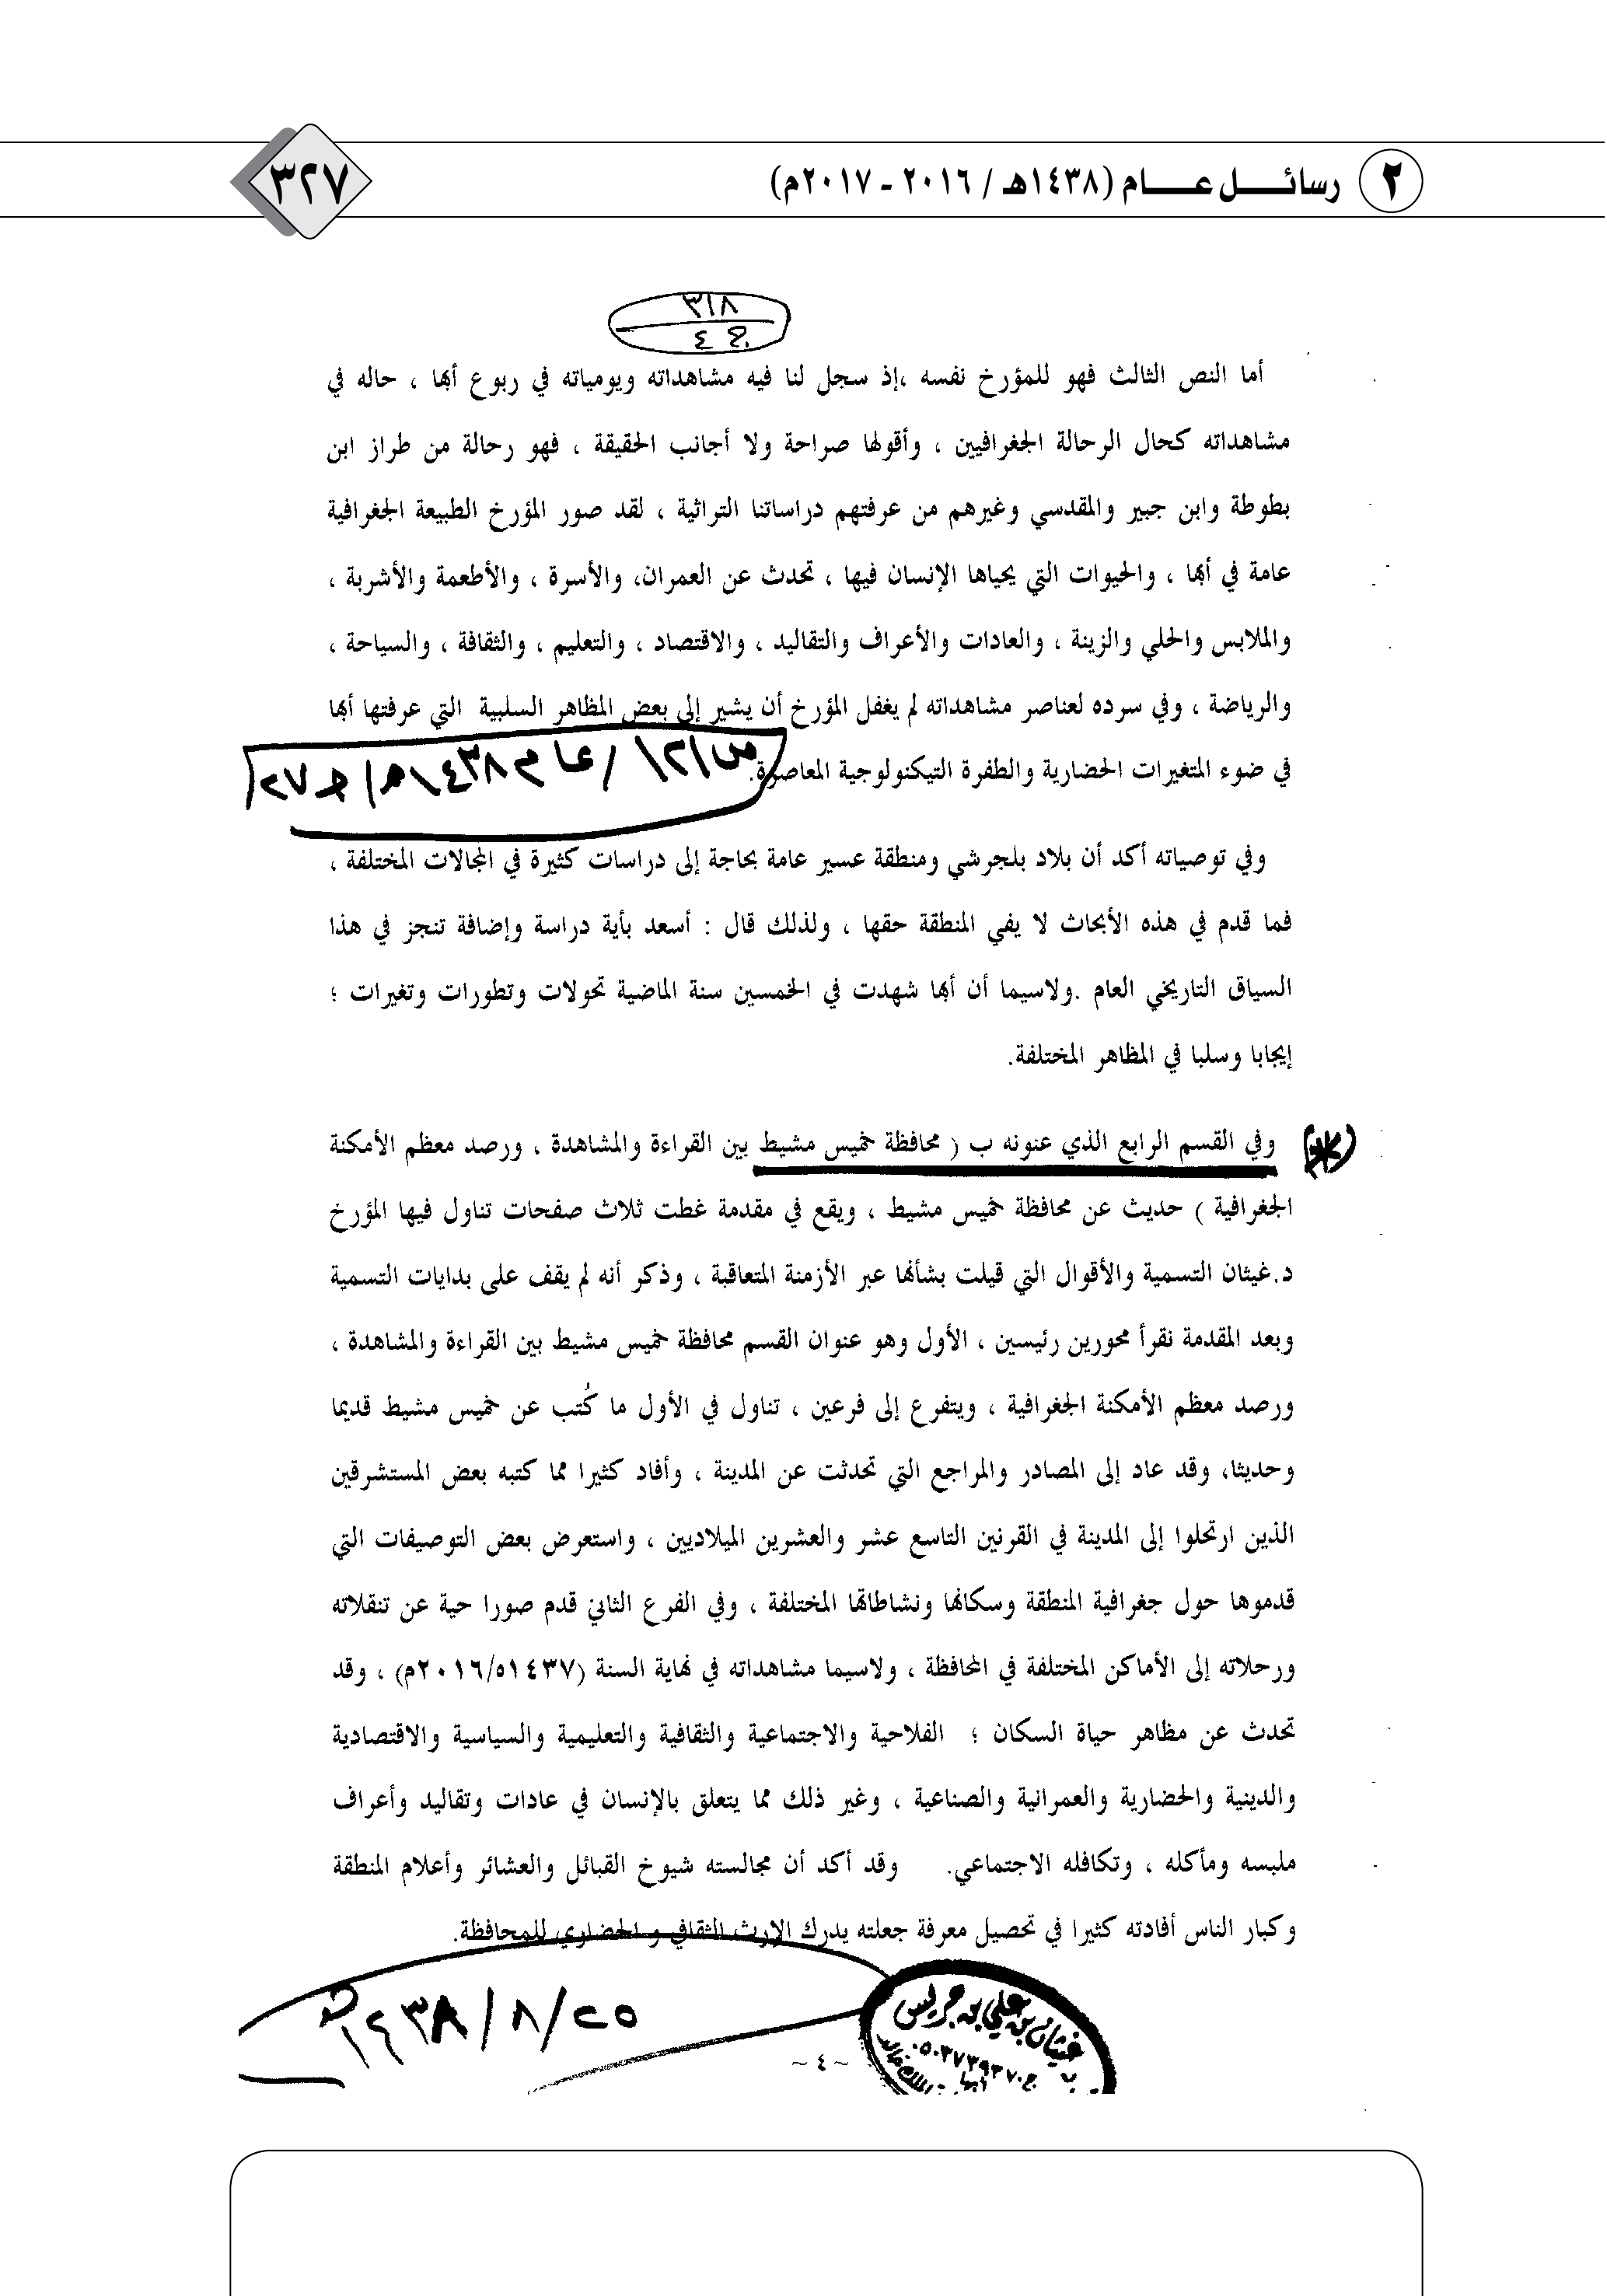 ٢ رسائل عام (١٤٣٨هـ / ٢٠١٦ - ٢٠١٧م)
٣٢٧
٣١٨
ج ٤
أما النص الثالث فهو للمؤرخ نفسه ،إذ سجل لنا فيه مشاهداته ويومياته في ربوع أبها ، حاله في
مشاهداته كحال الرحالة الجغرافيين ، وأقولها صراحة ولا أجانب الحقيقة ، فهو رحالة من طراز ابن
بطوطة وابن جبير والمقدسي وغيرهم من عرفتهم دراساتنا التراثية ، لقد صور المؤرخ الطبيعة الجغرافية
عامة في أبها ، والحيوات التي يحياها الإنسان فيها ، تحدث عن العمران، والأسرة ، والأطعمة والأشربة ،
والملابس والحلي والزينة ، والعادات والأعراف والتقاليد ، والاقتصاد ، والتعليم ، والثقافة ، والسياحة ،
والرياضة ، وفي سرده لعناصر مشاهداته لم يغفل المؤرخ أن يشير إلى بعض المظاهر السلبية التي عرفتها أبها
في ضوء المتغيرات الحضارية والطفرة التيكنولوجية المعاصرة.
/ عام ١٤٣٨هـ /
وفي توصياته أكد أن بلاد بلجرشي ومنطقة عسير عامة بحاجة إلى دراسات كثيرة في المجالات المختلفة ،
فما قدم في هذه الأبحاث لا يفي المنطقة حقها ، ولذلك قال : أسعد بأية دراسة وإضافة تنجز في هذا
السياق التاريخي العام .ولاسيما أن أبها شهدت في الخمسين سنة الماضية تحولات وتطورات وتغيرات ؛
إيجابا وسلبا في المظاهر المختلفة.
وفي القسم الرابع الذي عنونه ب ( محافظة خميس مشيط بين القراءة والمشاهدة ، ورصد معظم الأمكنة
الجغرافية ) حديث عن محافظة خميس مشيط ، ويقع في مقدمة غطت ثلاث صفحات تناول فيها المؤرخ
د.غيثان التسمية والأقوال التي قيلت بشأنها عبر الأزمنة المتعاقبة ، وذكر أنه لم يقف على بدايات التسمية
وبعد المقدمة نقرأ محورين رئيسين ، الأول وهو عنوان القسم محافظة خميس مشيط بين القراءة والمشاهدة ،
ورصد معظم الأمكنة الجغرافية ، ويتفرع إلى فرعين ، تناول في الأول ما كُتب عن خميس مشيط قديما
وحديثا، وقد عاد إلى المصادر والمراجع التي تحدثت عن المدينة ، وأفاد كثيرا مما كتبه بعض المستشرقين
الذين ارتحلوا إلى المدينة في القرنين التاسع عشر والعشرين الميلاديين ، واستعرض بعض التوصيفات التي
قدموها حول جغرافية المنطقة وسكانها ونشاطاتها المختلفة ، وفي الفرع الثاني قدم صورا حية عن تنقلاته
ورحلاته إلى الأماكن المختلفة في المحافظة ، ولاسيما مشاهداته في نهاية السنة (٢٠١٦/٥١٤٣٧م) ، وقد
تحدث عن مظاهر حياة السكان ؛ الفلاحية والاجتماعية والثقافية والتعليمية والسياسية والاقتصادية
والدينية والحضارية والعمرانية والصناعية ، وغير ذلك مما يتعلق بالإنسان في عادات وتقاليد وأعراف
ملبسه ومأكله ، وتكافله الاجتماعي. وقد أكد أن مجالسته شيوخ القبائل والعشائر وأعلام المنطقة
وكبار الناس أفادته كثيرا في تحصيل معرفة جعلته يدرك الإرث الثقافي و الحضاري للمحافظة.
٢٥/٨/١٤٣٨هـ
غيثان بن علي بن جريس
ج.٠٥٠٣٧٣٩٣٧٠
أبها
~ ٤ ~